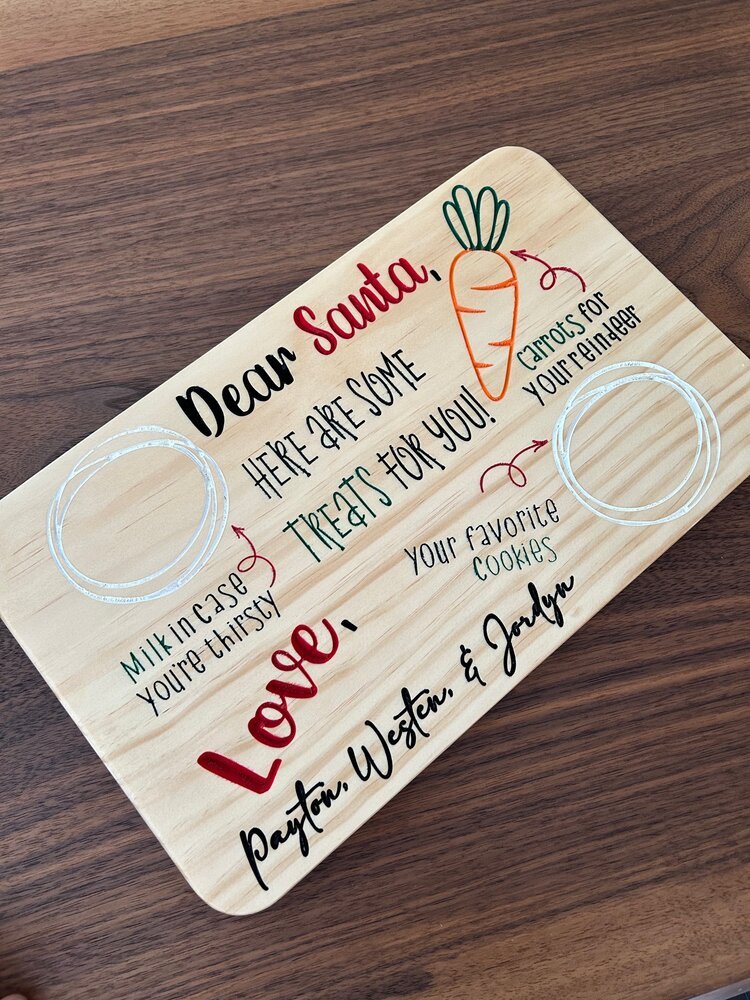 Dear Santa,
HERE ARE SOME
TREATS FOR YOU!
Carrots for
your reindeer
Milk in case
you're thirsty
Your favorite
cookies
Love,
Payton, Westen, & Jordyn